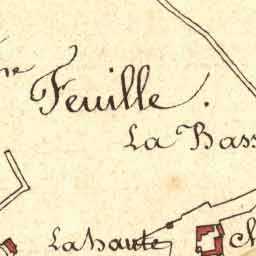 ne Feuille.
La Bass
La haute
ch